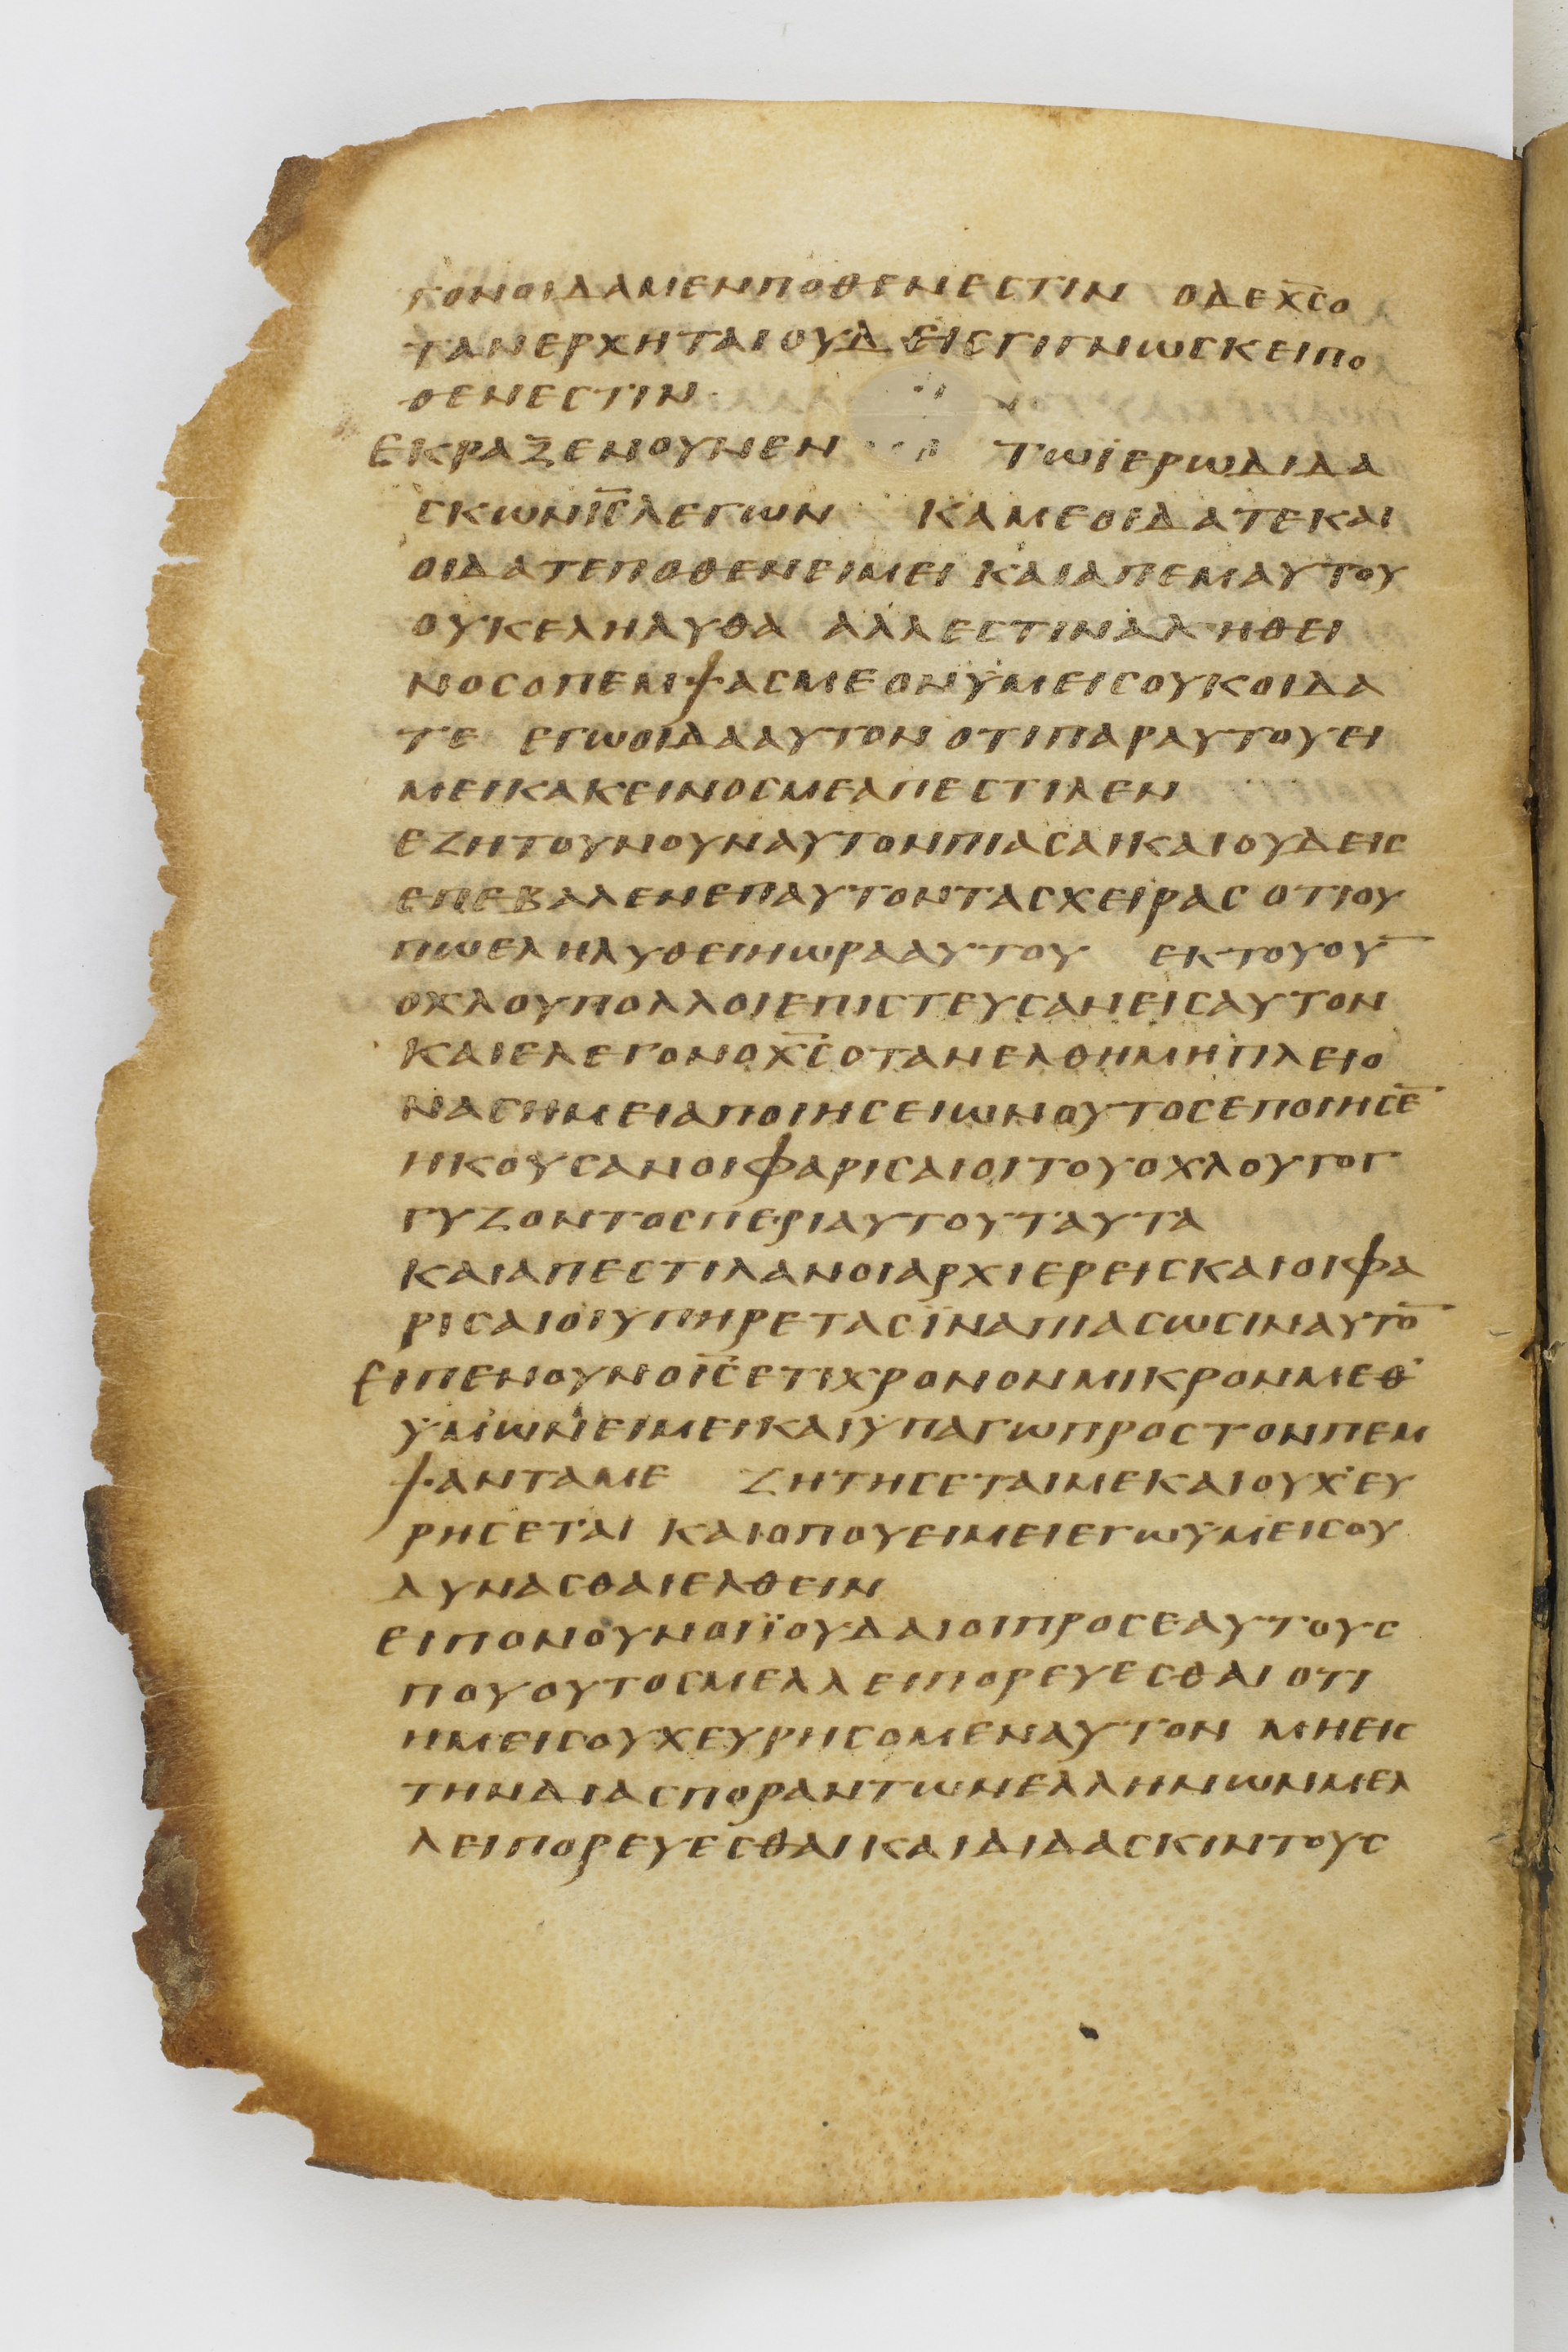 ΤΟΝΟΙΔΑΜΕΝΠΟΘΕΝΕΣΤΙΝ ΟΔΕΧ̅Σ̅Ο
ΤΑΝΕΡΧΗΤΑΙΟΥΔΕΙΣΓΙΓΝΩΣΚΕΙΠΟ
ΘΕΝΕΣΤΙΝ
ΕΚΡΑΞΕΝΟΥΝΕΝ ΤΩΪΕΡΩΔΙΔΑ
ΣΚΩΝΙ̅Σ̅ΛΕΓΩΝ ΚΑΜΕΟΙΔΑΤΕΚΑΙ
ΟΙΔΑΤΕΠΟΘΕΝΕΙΜΕΙ ΚΑΙΑΠΕΜΑΥΤΟΥ
ΟΥΚΕΛΗΛΥΘΑ ΑΛΛΕΣΤΙΝΑΛΗΘΕΙ
ΝΟΣΟΠΕΜΨΑΣΜΕΟΝΥΜΕΙΣΟΥΚΟΙΔΑ
ΤΕ ΕΓΩΟΙΔΑΑΥΤΟΝΟΤΙΠΑΡΑΥΤΟΥΕΙ
ΜΕΙΚΑΚΕΙΝΟΣΜΕΑΠΕΣΤΙΛΕΝ
ΕΖΗΤΟΥΝΟΥΝΑΥΤΟΝΠΙΑΣΑΙΚΑΙΟΥΔΕΙΣ
ΕΠΕΒΑΛΕΝΕΠΑΥΤΟΝΤΑΣΧΕΙΡΑΣ ΟΤΙΟΥ
ΠΩΕΛΗΛΥΘΕΙΗΩΡΑΑΥΤΟΥ ΕΚΤΟΥΟΥ̅
ΟΧΛΟΥΠΟΛΛΟΙΕΠΙΣΤΕΥΣΑΝΕΙΣΑΥΤΟΝ
ΚΑΙΕΛΕΓΟΝΟΧ̅Σ̅ΟΤΑΝΕΛΘΗΜΗΠΛΕΙΟ
ΝΑΣΗΜΕΙΑΠΟΙΗΣΕΙΩΝΟΥΤΟΣΕΠΟΙΗΣΕ̅
ΗΚΟΥΣΑΝΟΙΦΑΡΙΣΑΙΟΙΤΟΥΟΧΛΟΥΓΟΓ
ΓΥΖΟΝΤΟΣΠΕΡΙΑΥΤΟΥΤΑΥΤΑ
ΚΑΙΑΠΕΣΤΙΛΑΝΟΙΑΡΧΙΕΡΕΙΣΚΑΙΟΙΦΑ
ΡΙΣΑΙΟΙΥΠΗΡΕΤΑΣΪΝΑΠΙΑΣΩΣΙΝΑΥΤΟ̅
ΕΙΠΕΝΟΥΝΟΙ̅Σ̅ΕΤΙΧΡΟΝΟΝΜΙΚΡΟΝΜΕΘ
ΥΜΩΝΕΙΜΕΙΚΑΙΥΠΑΓΩΠΡΟΣΤΟΝΠΕΜ
ΨΑΝΤΑΜΕ ΖΗΤΗΣΕΤΑΙΜΕΚΑΙΟΥΧ᾽ΕΥ
ΡΗΣΕΤΑΙ ΚΑΙΟΠΟΥΕΙΜΕΙΕΓΩΥΜΕΙΣΟΥ
ΔΥΝΑΣΘΑΙΕΛΘΕΙΝ
ΕΙΠΟΝΟΥΝΟΙΪΟΥΔΑΙΟΙΠΡΟΣΕΑΥΤΟΥΣ
ΠΟΥΟΥΤΟΣΜΕΛΛΕΙΠΟΡΕΥΕΣΘΑΙΟΤΙ
ΗΜΕΙΣΟΥΧΕΥΡΗΣΟΜΕΝΑΥΤΟΝ ΜΗΕΙΣ
ΤΗΝΔΙΑΣΠΟΡΑΝΤΩΝΕΛΛΗΝΩΝΜΕΛ
ΛΕΙΠΟΡΕΥΕΣΘΑΙΚΑΙΔΙΔΑΣΚΙΝΤΟΥΣ